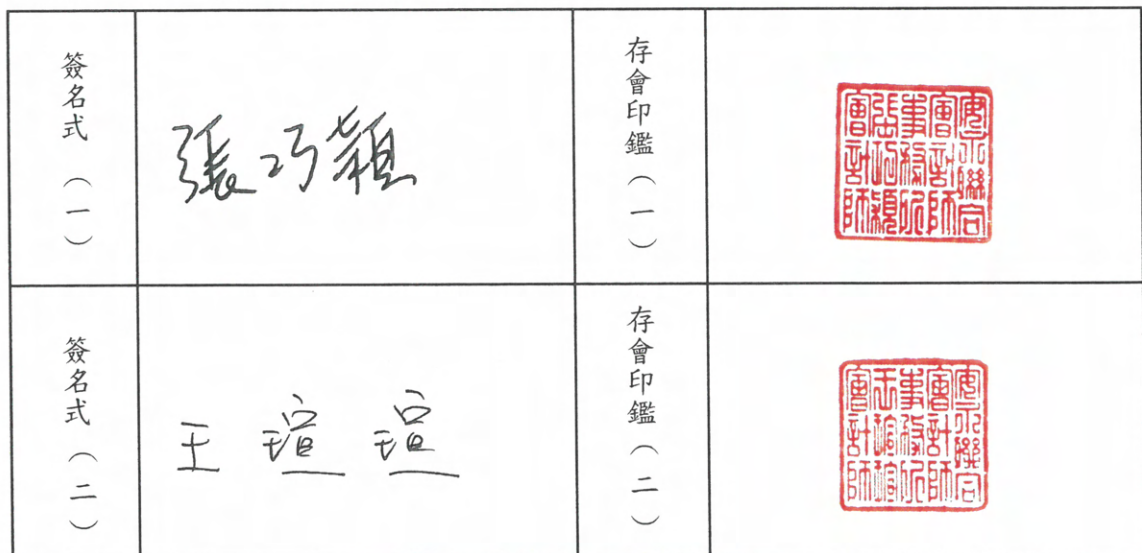 簽名式（一）
張巧穎
存會印鑑（一）
安永聯合
會計師
事務所
張巧穎
會計師
簽名式（二）
王瑄瑄
存會印鑑（二）
安永聯合
會計師
事務所
王瑄瑄
會計師